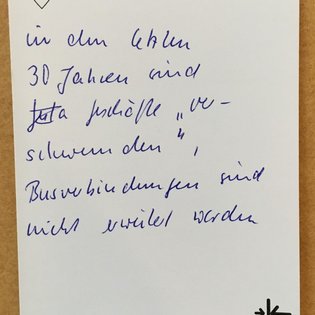 in den letzten
30 Jahren sind
Geschäfte „ver-
schwunden",
Busverbindungen sind
nicht erweitert worden